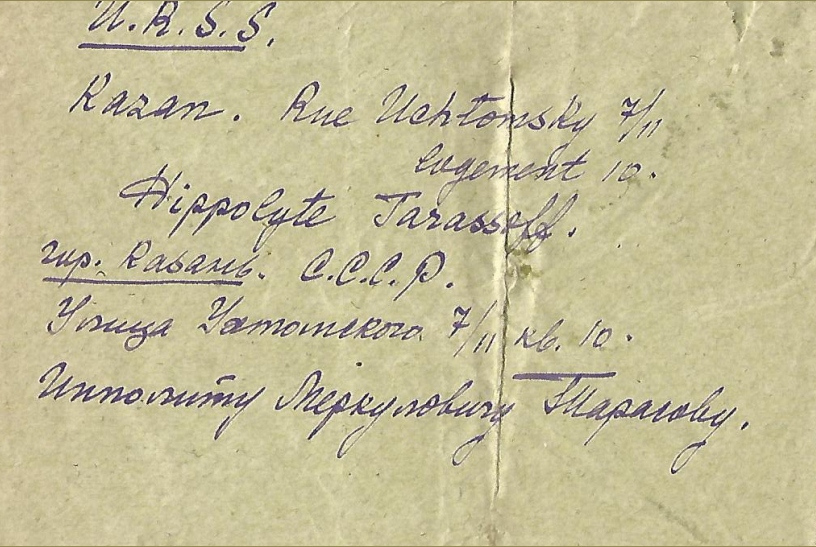 U.R.S.S.
Kazan. Rue Uchtomsky 7/11
logement 10.
Hippolyte Tarassoff.
гор. Казань. С.С.С.Р.
Улица Ухтомского 7/11 кв. 10.
Ипполиту Меркуловичу Тарасову.